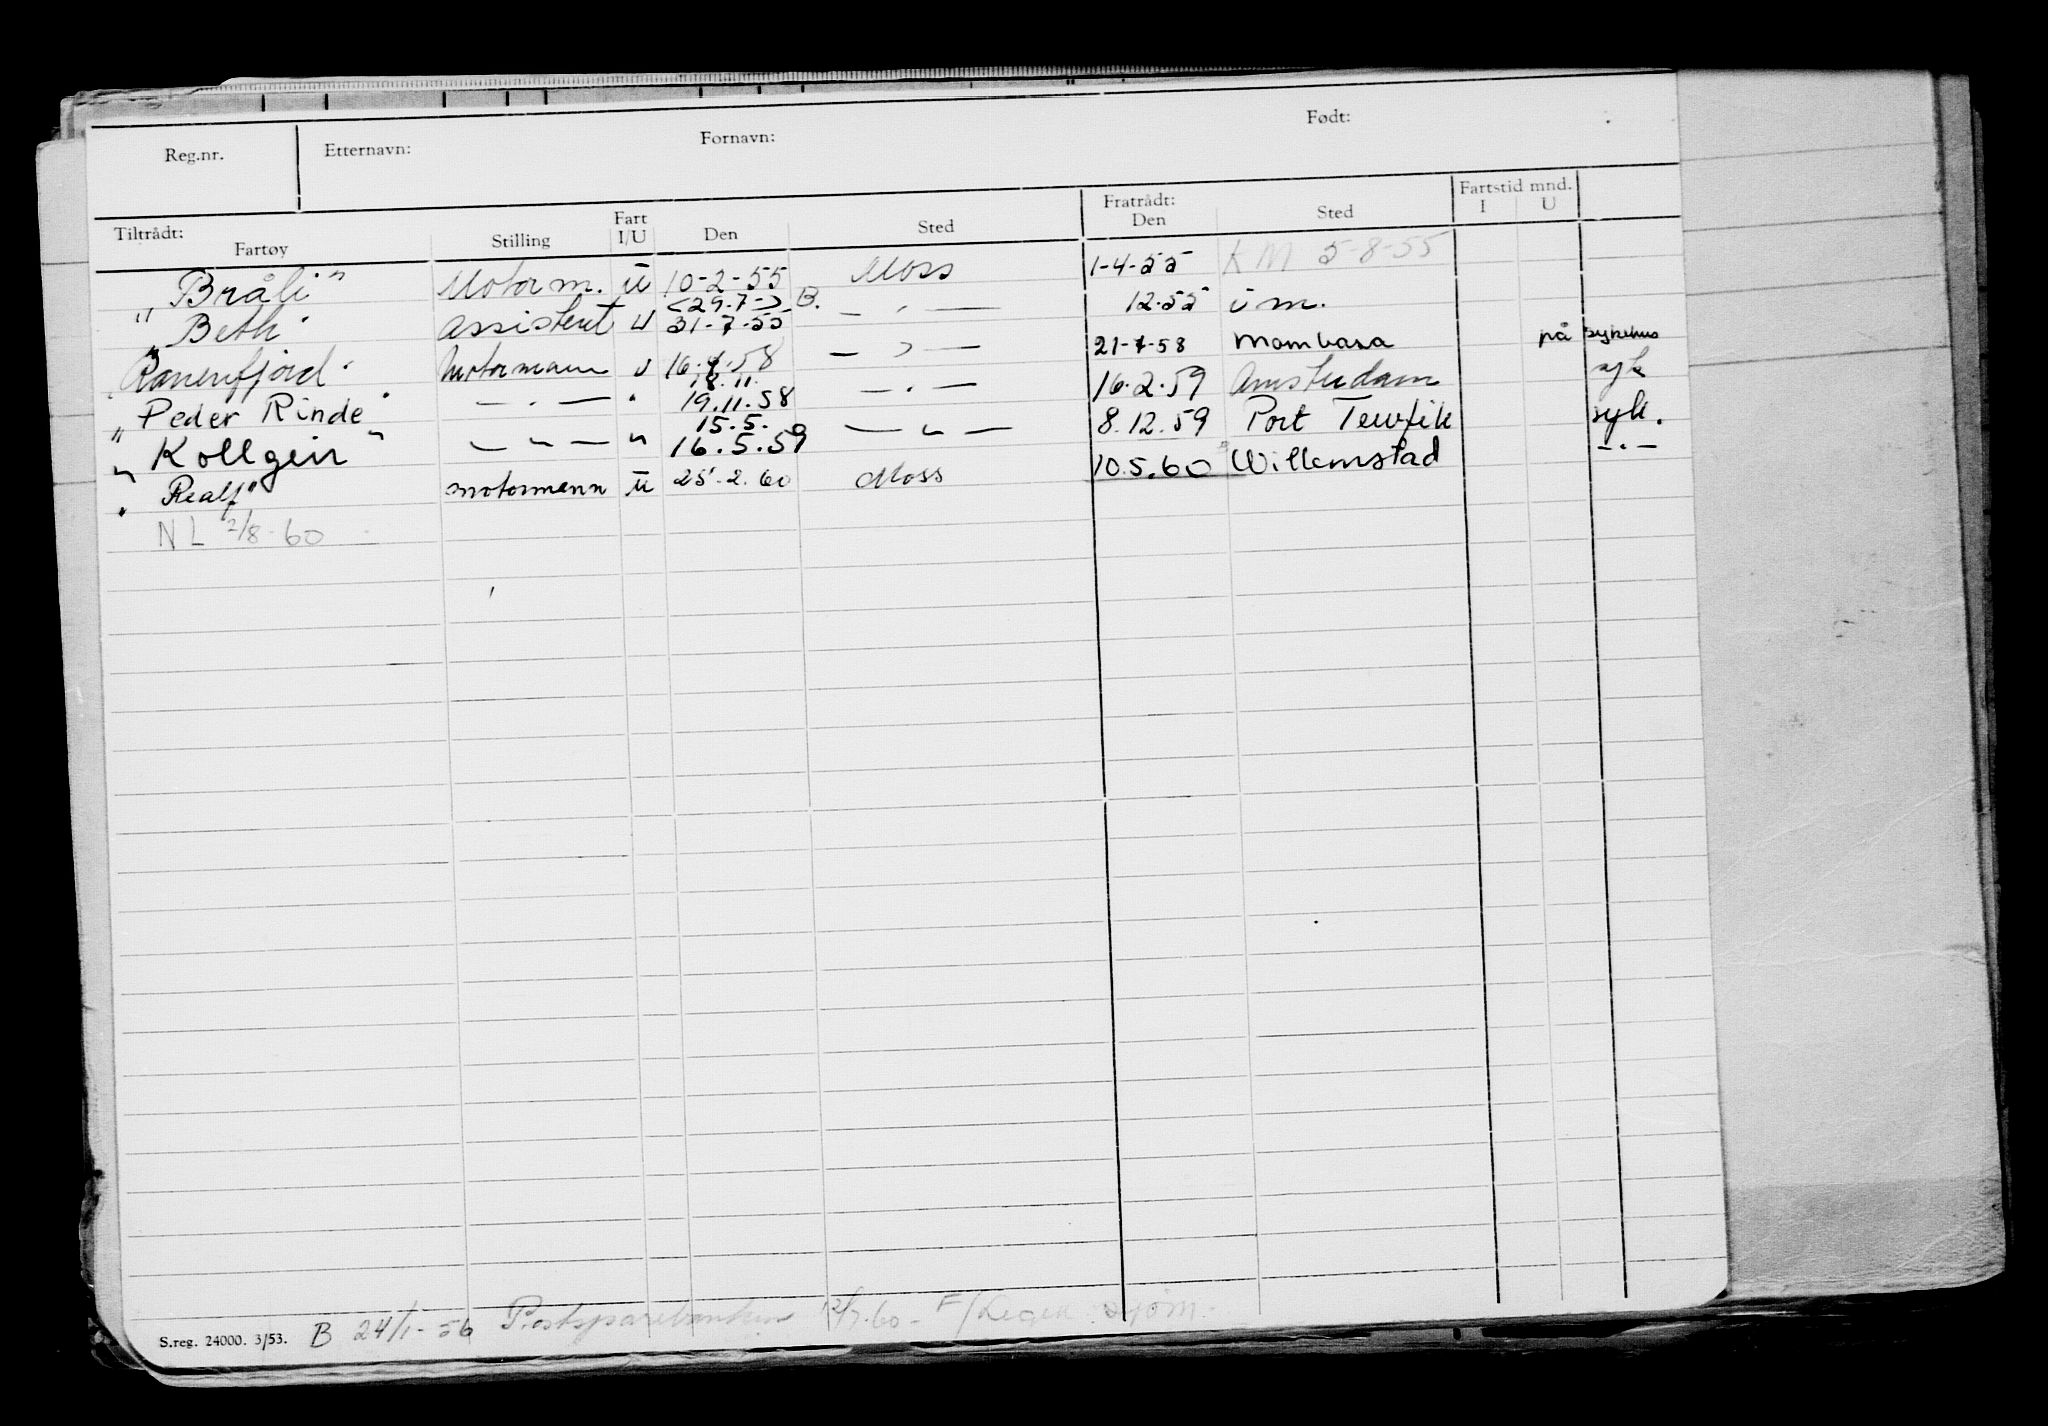 Reg.nr. Etternavn: Fornavn: Født:
Tiltrådt: Fratrådt: Fartstid mnd.
Fartøy Stilling Fart I/U Den Sted Den Sted I U
"Bråli" Motorm. U 10-2-55 Moss 1-4-55 K M 5-8-55
<29.7-> B.
"Beth" Assistent U 31-7-55 — " — 12.55 u m.
"Ranenfjord" Motormann U 16.4.58 — " — 21-7-58 Mombasa på sykehus
18.11.
"Peder Rinde" — " — " 19.11.58 — " — 16.2.59 Amsterdam syk
15.5.
"Kollgeir" — " — " 16.5.59 — " — 8.12.59 Port Tewfik syk.
"Realf" motormann U 25.2.60 Moss 10.5.60 Willemstad — " —
N L 2/8-60
S.reg. 24000. 3/53. B 24/1-56 Postsparebanken 12/7.60- F/